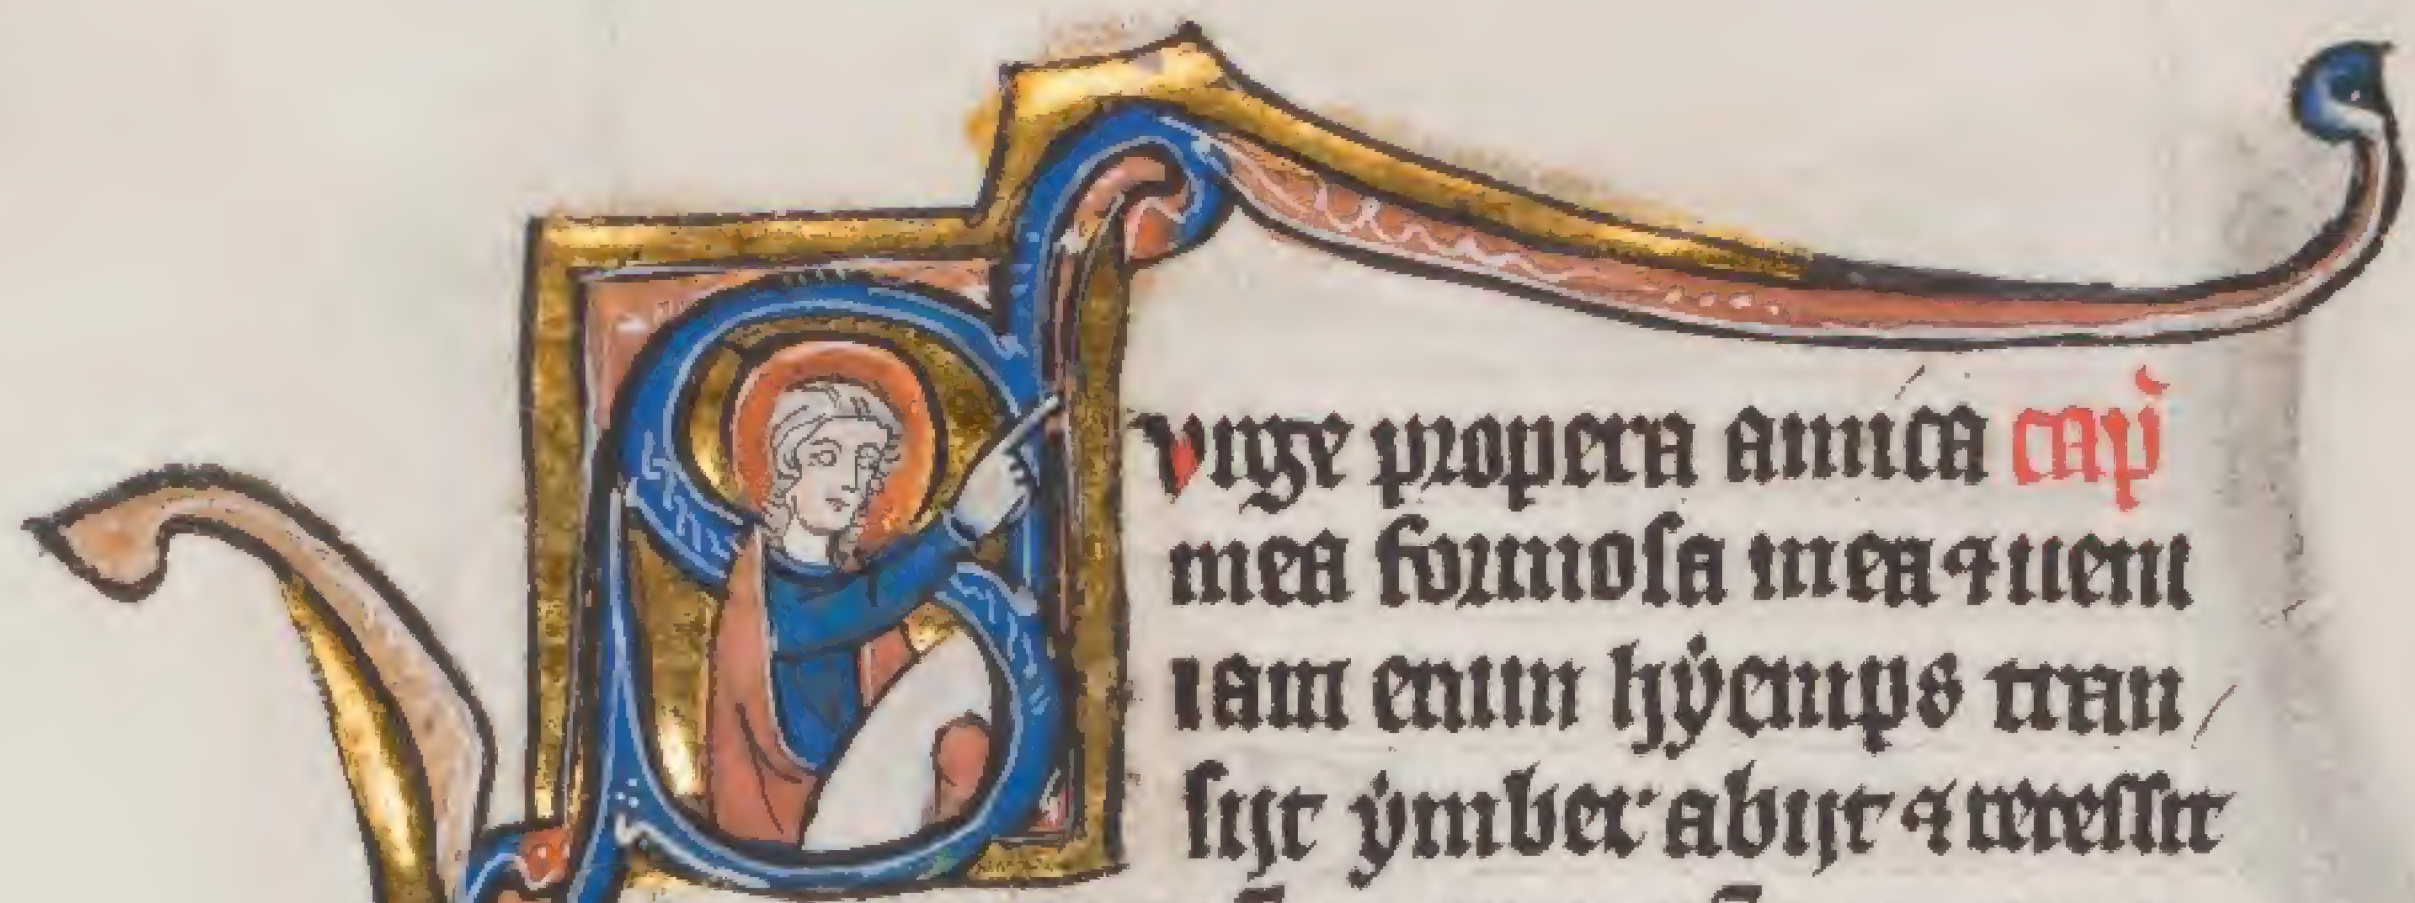 Surge propera amica cap̄
mea formosa mea ⁊ ueni
iam enim hẏemps tran
siit ẏmber abiit ⁊ recessit